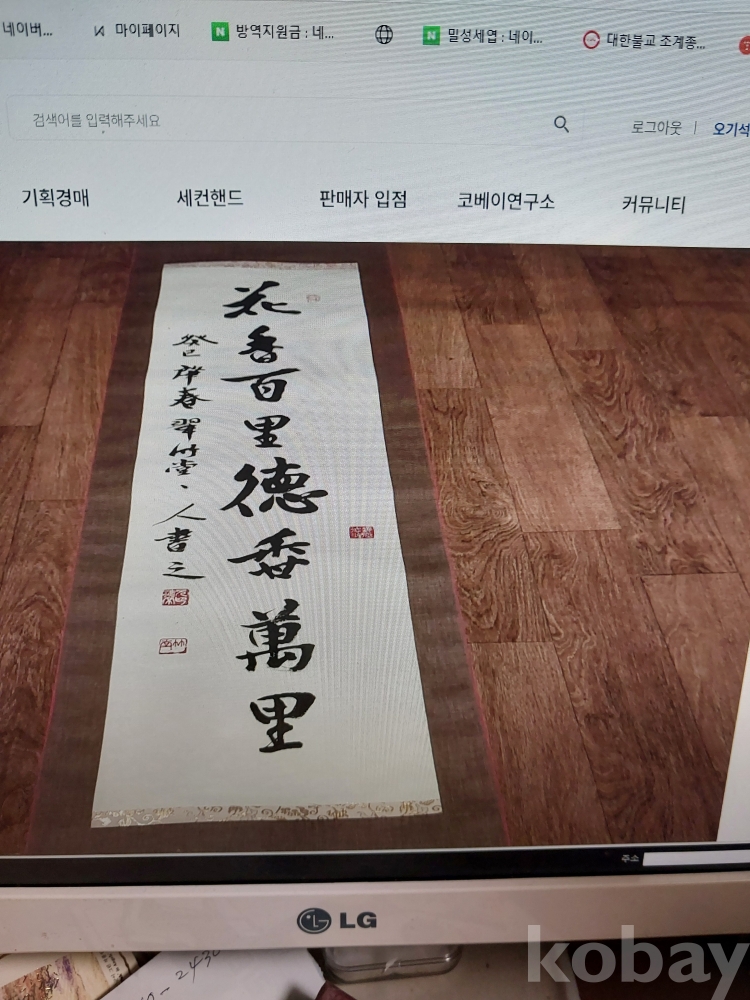 네이버...
마이페이지
방역지원금 : 네...
밀성세엽 : 네이...
대한불교 조계종...
검색어를 입력해주세요
로그아웃 | 오기석
기획경매
세컨핸드
판매자 입점
코베이연구소
커뮤니티
花香百里德香萬里
癸巳 春 翠竹堂、人書之
주소
LG
kobay